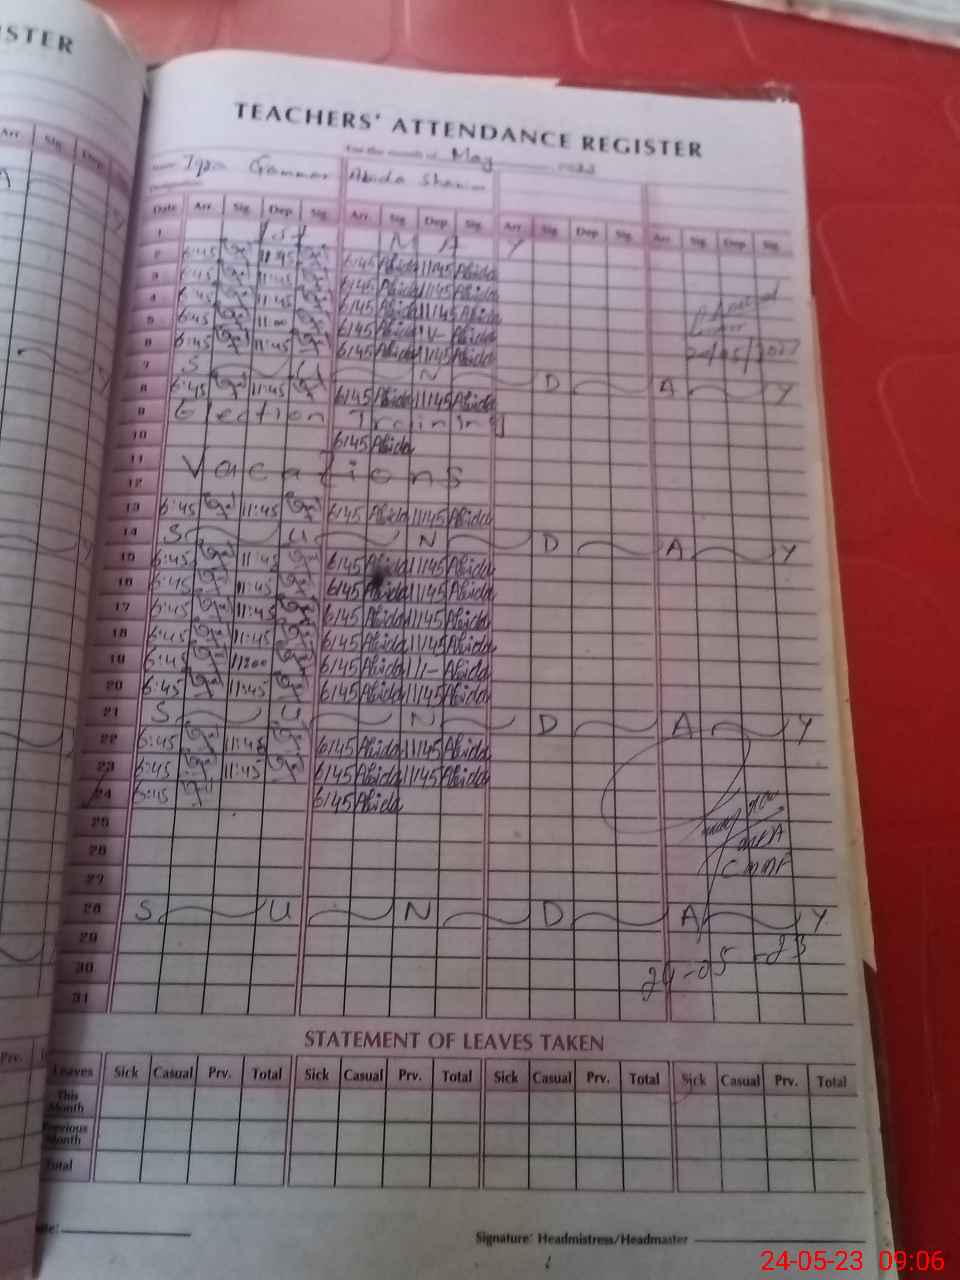 ISTER
TEACHERS' ATTENDANCE REGISTER
For the month of May
Abida Shamim
Designation
Arr. Sig. Dep
Date Arr. Sig. Dep Sig. Arr. Sig. Dep. Sig. Arr. Sig. Dep Sig. Arr. Sig. Dep Sig.
1 1st M A Y
2 6:45 11:45 6:45 Abida 11:45 Abida
3 6:45 11:45 6:45 Abida 11:45 Abida
4 6:45 11:45 6:45 Abida 11:45 Abida
5 6:45 11:00 6:45 Abida 11- Abida
6 6:45 11:45 6:45 Abida 11:45 Abida
7 S U N D A Y
8 6:45 11:45 6:45 Abida 11:45 Abida
9 Election Training
10 6:45 Abida
11 Vacations
12
13 6:45 11:45 6:45 Abida 11:45 Abida
14 S U N D A Y
15 6:45 11:45 6:45 Abida 11:45 Abida
16 6:45 11:45 6:45 Abida 11:45 Abida
17 6:45 11:45 6:45 Abida 11:45 Abida
18 6:45 11:45 6:45 Abida 11:45 Abida
19 6:45 11:00 6:45 Abida 11- Abida
20 6:45 11:45 6:45 Abida 11:45 Abida
21 S U N D A Y
22 6:45 11:45 6:45 Abida 11:45 Abida
23 6:45 11:45 6:45 Abida 11:45 Abida
24 6:45 6:45 Abida
25
26
27
28 S U N D A Y
29
30 24-05-23
31
STATEMENT OF LEAVES TAKEN
Prv.
Leaves Sick Casual Prv. Total Sick Casual Prv. Total Sick Casual Prv. Total Sick Casual Prv. Total
This Month
Previous Month
Total
Signature: Headmistress/Headmaster
24-05-23 09:06